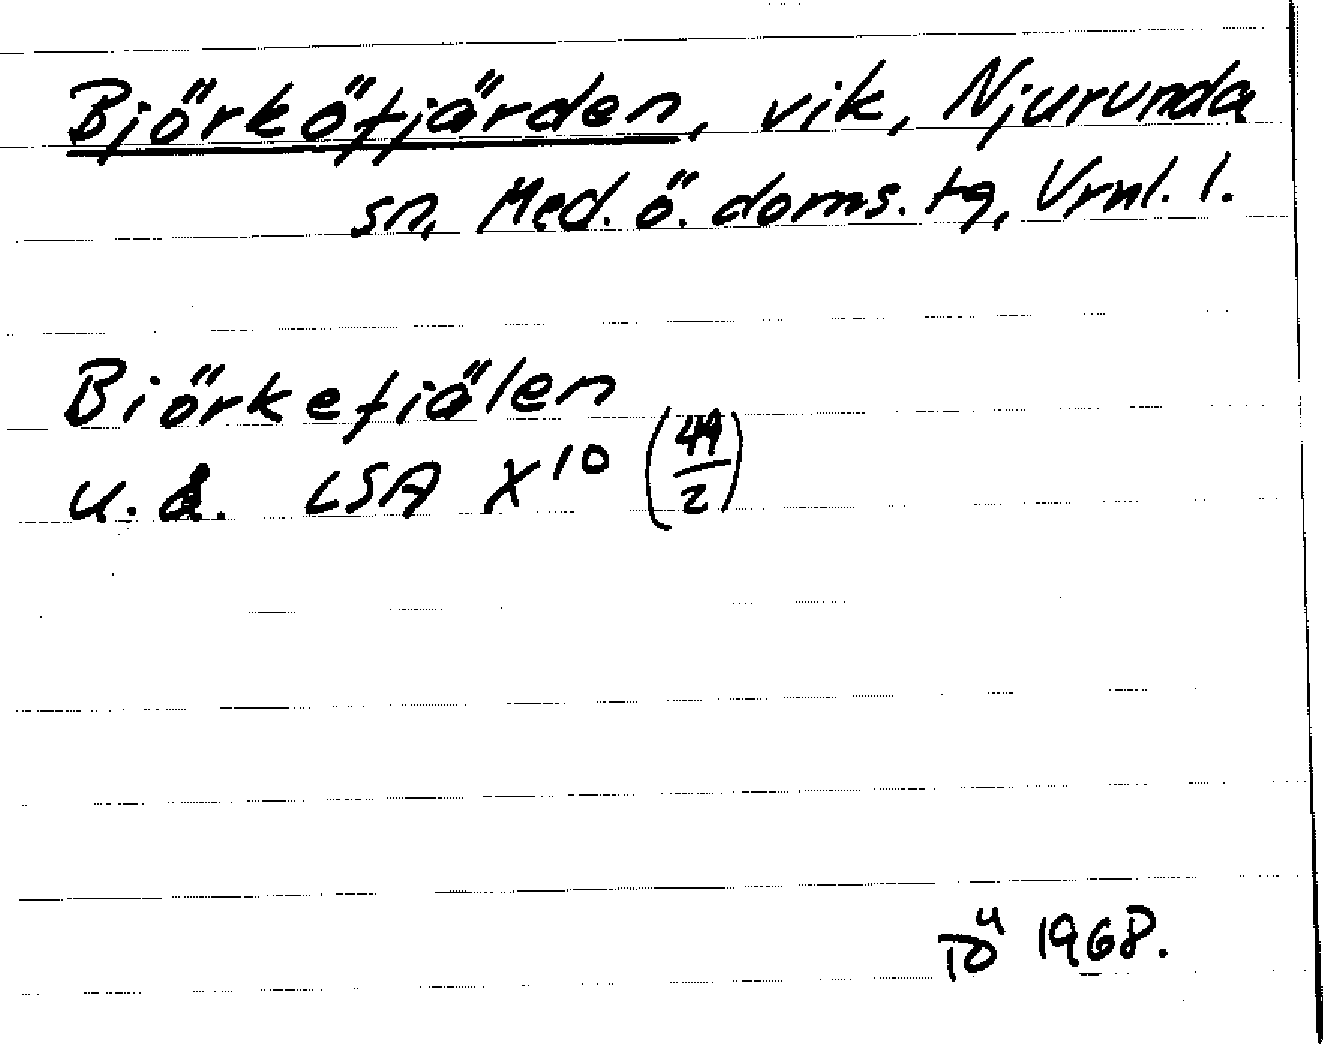 Björköfjärden, vik, Njurunda
sn, Med. ö. doms. tg, Vrnl. l.
Biörkefiälen
u. d. LSA X¹⁰ (49/2)
Tö 1968.